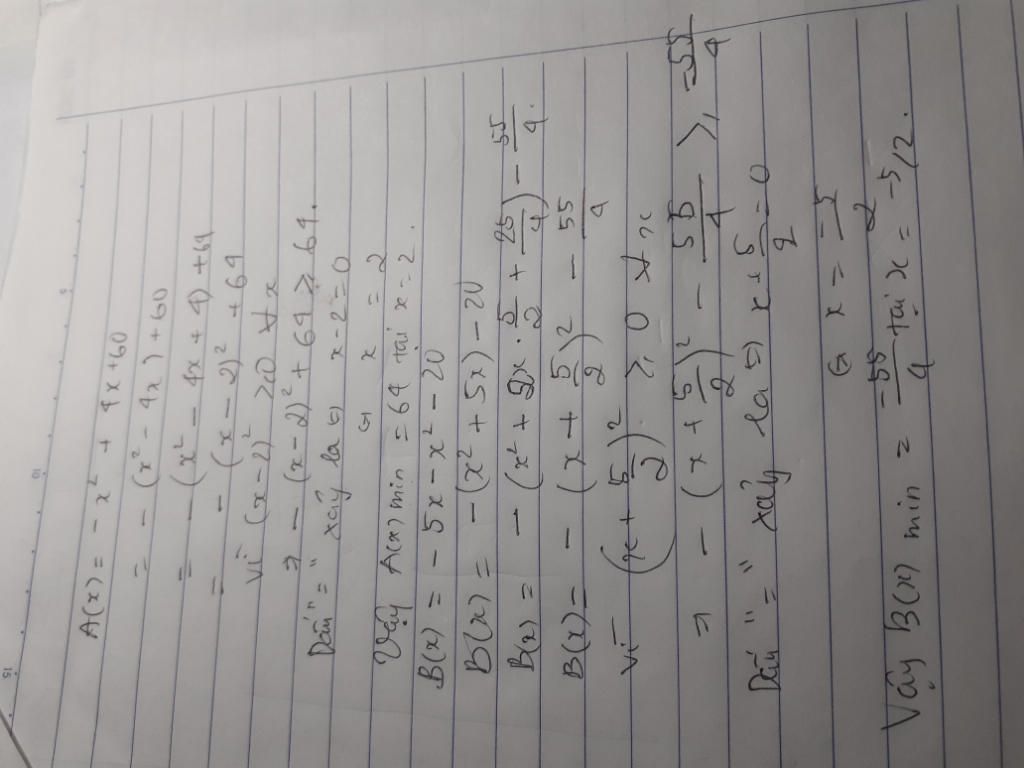 A(x) = - x² + 4x + 60
= - (x² - 4x) + 60
= - (x² - 4x + 4) + 64
= - (x - 2)² + 64
Vì (x - 2)² ≥ 0 ∀ x
⇒ - (x - 2)² + 64 ≥ 64.
Dấu "=" xảy ra ⇔ x - 2 = 0
⇔ x = 2
Vậy A(x) min = 64 tại x = 2.
B(x) = - 5x - x² - 20
B(x) = - (x² + 5x) - 20
B(x) = - (x² + 2x . 5/2 + 25/4) - 55/4.
B(x) = - (x + 5/2)² - 55/4
Vì (x + 5/2)² ≥ 0 ∀ x
⇒ - (x + 5/2)² - 55/4 ≥ -55/4
Dấu "=" xảy ra ⇔ x + 5/2 = 0
⇔ x = -5/2
Vậy B(x) min = -55/4 tại x = -5/2.
15
10
5